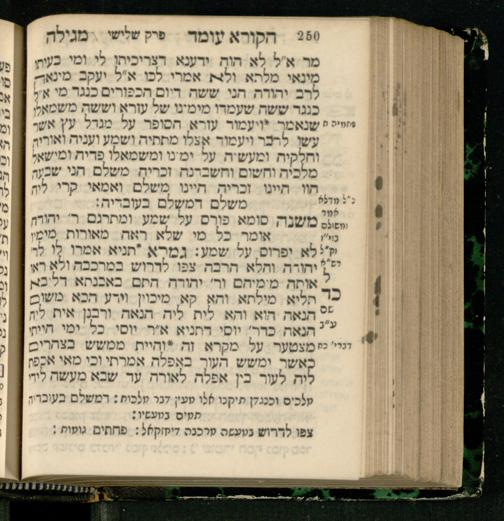 250 הקורא עומד פרק שלישי מגילה
מר א״ל לא הוה ידענא דצריכיתו לי ומי בעיתו
מינאי מלתא ולא אמרי לכו א״ל יעקב מינאה
לרב יהודה הני ששה דיום הכפורים כנגד מי א״ל
כנגד ששה שעמדו מימינו של עזרא וששה משמאלו
שנאמר *ויעמוד עזרא הסופר על מגדל עץ אשר
עשו לדבר ויעמוד אצלו מתתיה ושמע ועניה ואוריה
וחלקיה ומעשיה על ימינו ומשמאלו פדיה ומישאל
מלכיה וחשום וחשבדנה זכריה משלם הני שבעה
הוו היינו זכריה היינו משלם ואמאי קרי ליה
משלם דמשלם בעובדיה:
משנה סומא פורס על שמע ומתרגם ר׳ יהודה
אומר כל מי שלא ראה מאורות מימיו
לא יפרוס על שמע: גמרא *תניא אמרו לו לר׳
יהודה והלא הרבה צפו לדרוש במרכבה ולא ראו
אותה מימיהם ור׳ יהודה התם באבנתא דליבא
תליא מילתא והא קא מיכוין וידע הכא משום
הנאה הוא והא לית ליה הנאה ורבנן אית ליה
הנאה כדר׳ יוסי דתניא א״ר יוסי כל ימי הייתי
מצטער על מקרא זה *והיית ממשש בצהרים
כאשר ימשש העור באפלה אמרתי וכי מאי אכפת
ליה לעור בין אפלה לאורה עד שבא מעשה לידי
דמשלם בעובדיה:
תמים במעשיו:
צפו לדרוש במעשה מרכבה דיחזקאל: פחתים גומות:
נחמיה ח
אמר
כד
שם
ע״ב
דברי׳ כח